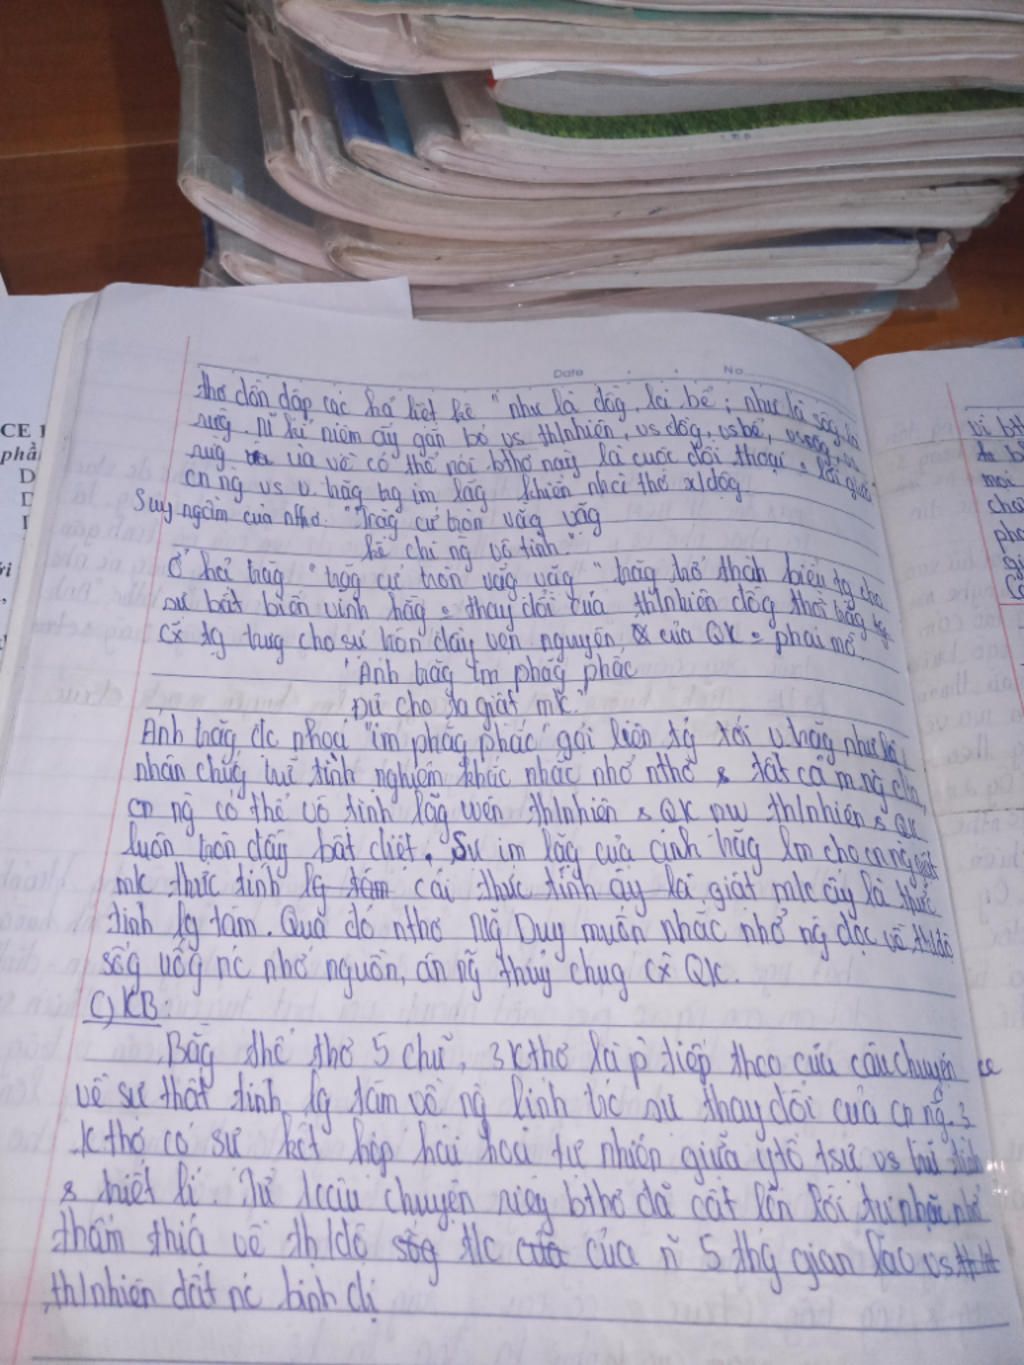 Date No
thơ dồn dập các h/ả liệt kê "như là đồng, là bể; như là sông, là
rừg. Nhữ kỉ niệm ấy gắn bó vs th/nhiên, vs đồg, vs bể,
rừg vừa về có thể nói bthơ này là cuộc đối thoại = lời giữa
cn ng vs v. trăg trg im lặg khiến nhà thơ x/độg
Suy ngẫm của nthơ. "Trăg cứ tròn vằg vặg
kể chi ng vô tình."
Ở h/ả trăg "trăg cứ tròn vằg vặg" trăg trở thàh biểu tg cho
sự bất biến vĩnh hằg = thay đổi của th/nhiên đồg thời trăg
cx tg trưg cho sự tròn đầy vẹn nguyên, của QK = phai mờ.
"Ánh trăg im phăg phắc
Đủ cho ta giật mk."
Ánh trăg đc nhoá "im phăg phắc" gợi liên tg tới v. trăg như là 1
nhân chứg tuy tình nghiêm khắc nhắc nhở nthơ & tất cả m.ng
cn ng có thể vô tình lãg wên th/nhiên & QK nw th/nhiên & QK
luôn tròn đầy bất diệt. Sự im lặg của ánh trăg lm cho cn ng giật
mk thức tỉnh lg tâm cái thức tỉnh ấy là giật mk ấy là thức
tỉnh lg tâm. Qua đó nthơ Ng Duy muốn nhắc nhở ng đọc về th/độ
sốg uốg nc nhớ nguồn, ân ng thuỷ chug cx QK.
C) KB:
Bằg thể thơ 5 chữ, 3 K thơ là p tiếp theo của câu chuyện
về sự thất tỉnh lg tâm về ng lính trc sự thay đổi của cn ng. 3
K thơ có sự kết hợp hài hoà tự nhiên giữa ytố tsự vs trữ tình
& triết lí. Từ 1 câu chuyện riêg bthơ đã cất lên lời tự nhắc nhở
thấm thía về th/độ sốg t/c của n~ 5 thg gian lao vs
th/nhiên đất nc bình dị
CE
phầ
D
D